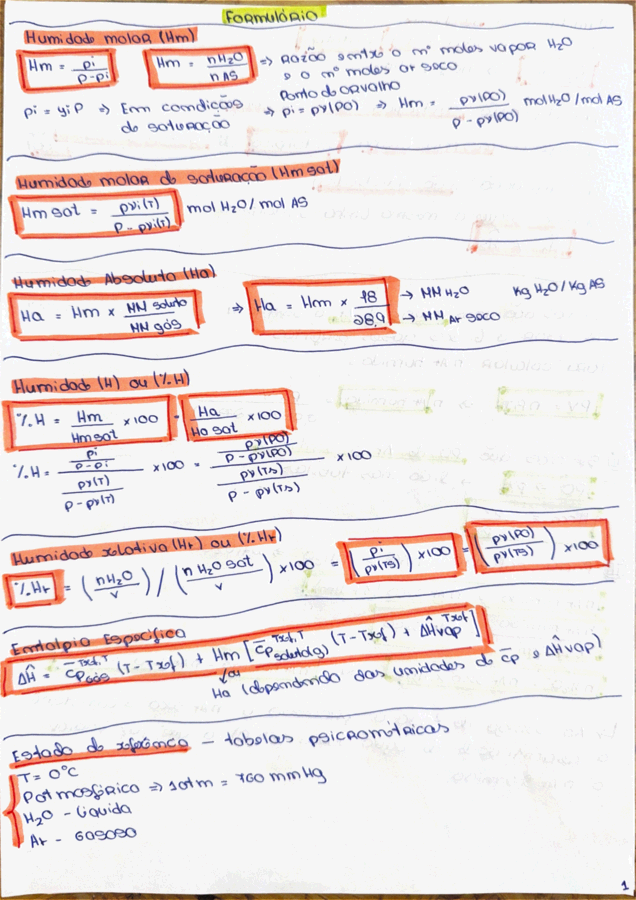 FORMULÁRIO
Humidade molar (Hm)
Hm = pi / P-pi    Hm = nH2O / nAS ⇒ Razão entre o nº moles vapor H2O e o nº moles ar seco
Ponto de orvalho
pi = yi P ⇒ Em condições de saturação ⇒ pi = pv(PO) ⇒ Hm = pv(PO) / P - pv(PO) mol H2O / mol AS
Humidade molar de saturação (Hm sat)
Hm sat = pvi(T) / P - pvi(T) mol H2O / mol AS
Humidade Absoluta (Ha)
Ha = Hm × MM soluto / MM gás ⇒ Ha = Hm × 18 / 28,9 → MM H2O → MM Ar seco    Kg H2O / Kg AS
Humidade (H) ou (%H)
%H = Hm / Hm sat × 100 = Ha / Ha sat × 100
%H = (pi / P-pi) / (pv(T) / P - pv(T)) × 100 = (pv(PO) / P - pv(PO)) / (pv(TS) / P - pv(TS)) × 100
Humidade relativa (Hr) ou (%Hr)
%Hr = (nH2O / v) / (n H2O sat / v) × 100 = (pi / pv(TS)) × 100 = (pv(PO) / pv(TS)) × 100
Entalpia Específica
ΔĤ = c̄p gás Tref,T (T - Tref) + Hm [c̄p soluto(g) Tref,T (T - Tref) + ΔĤvap Tref]
↙ou
Ha (dependendo das unidades do c̄p e ΔĤvap)
Estado de referência - tabelas psicrométricas
T = 0°C
Patmosférica ⇒ 1 atm = 760 mmHg
H2O - Líquida
Ar - Gasoso
1